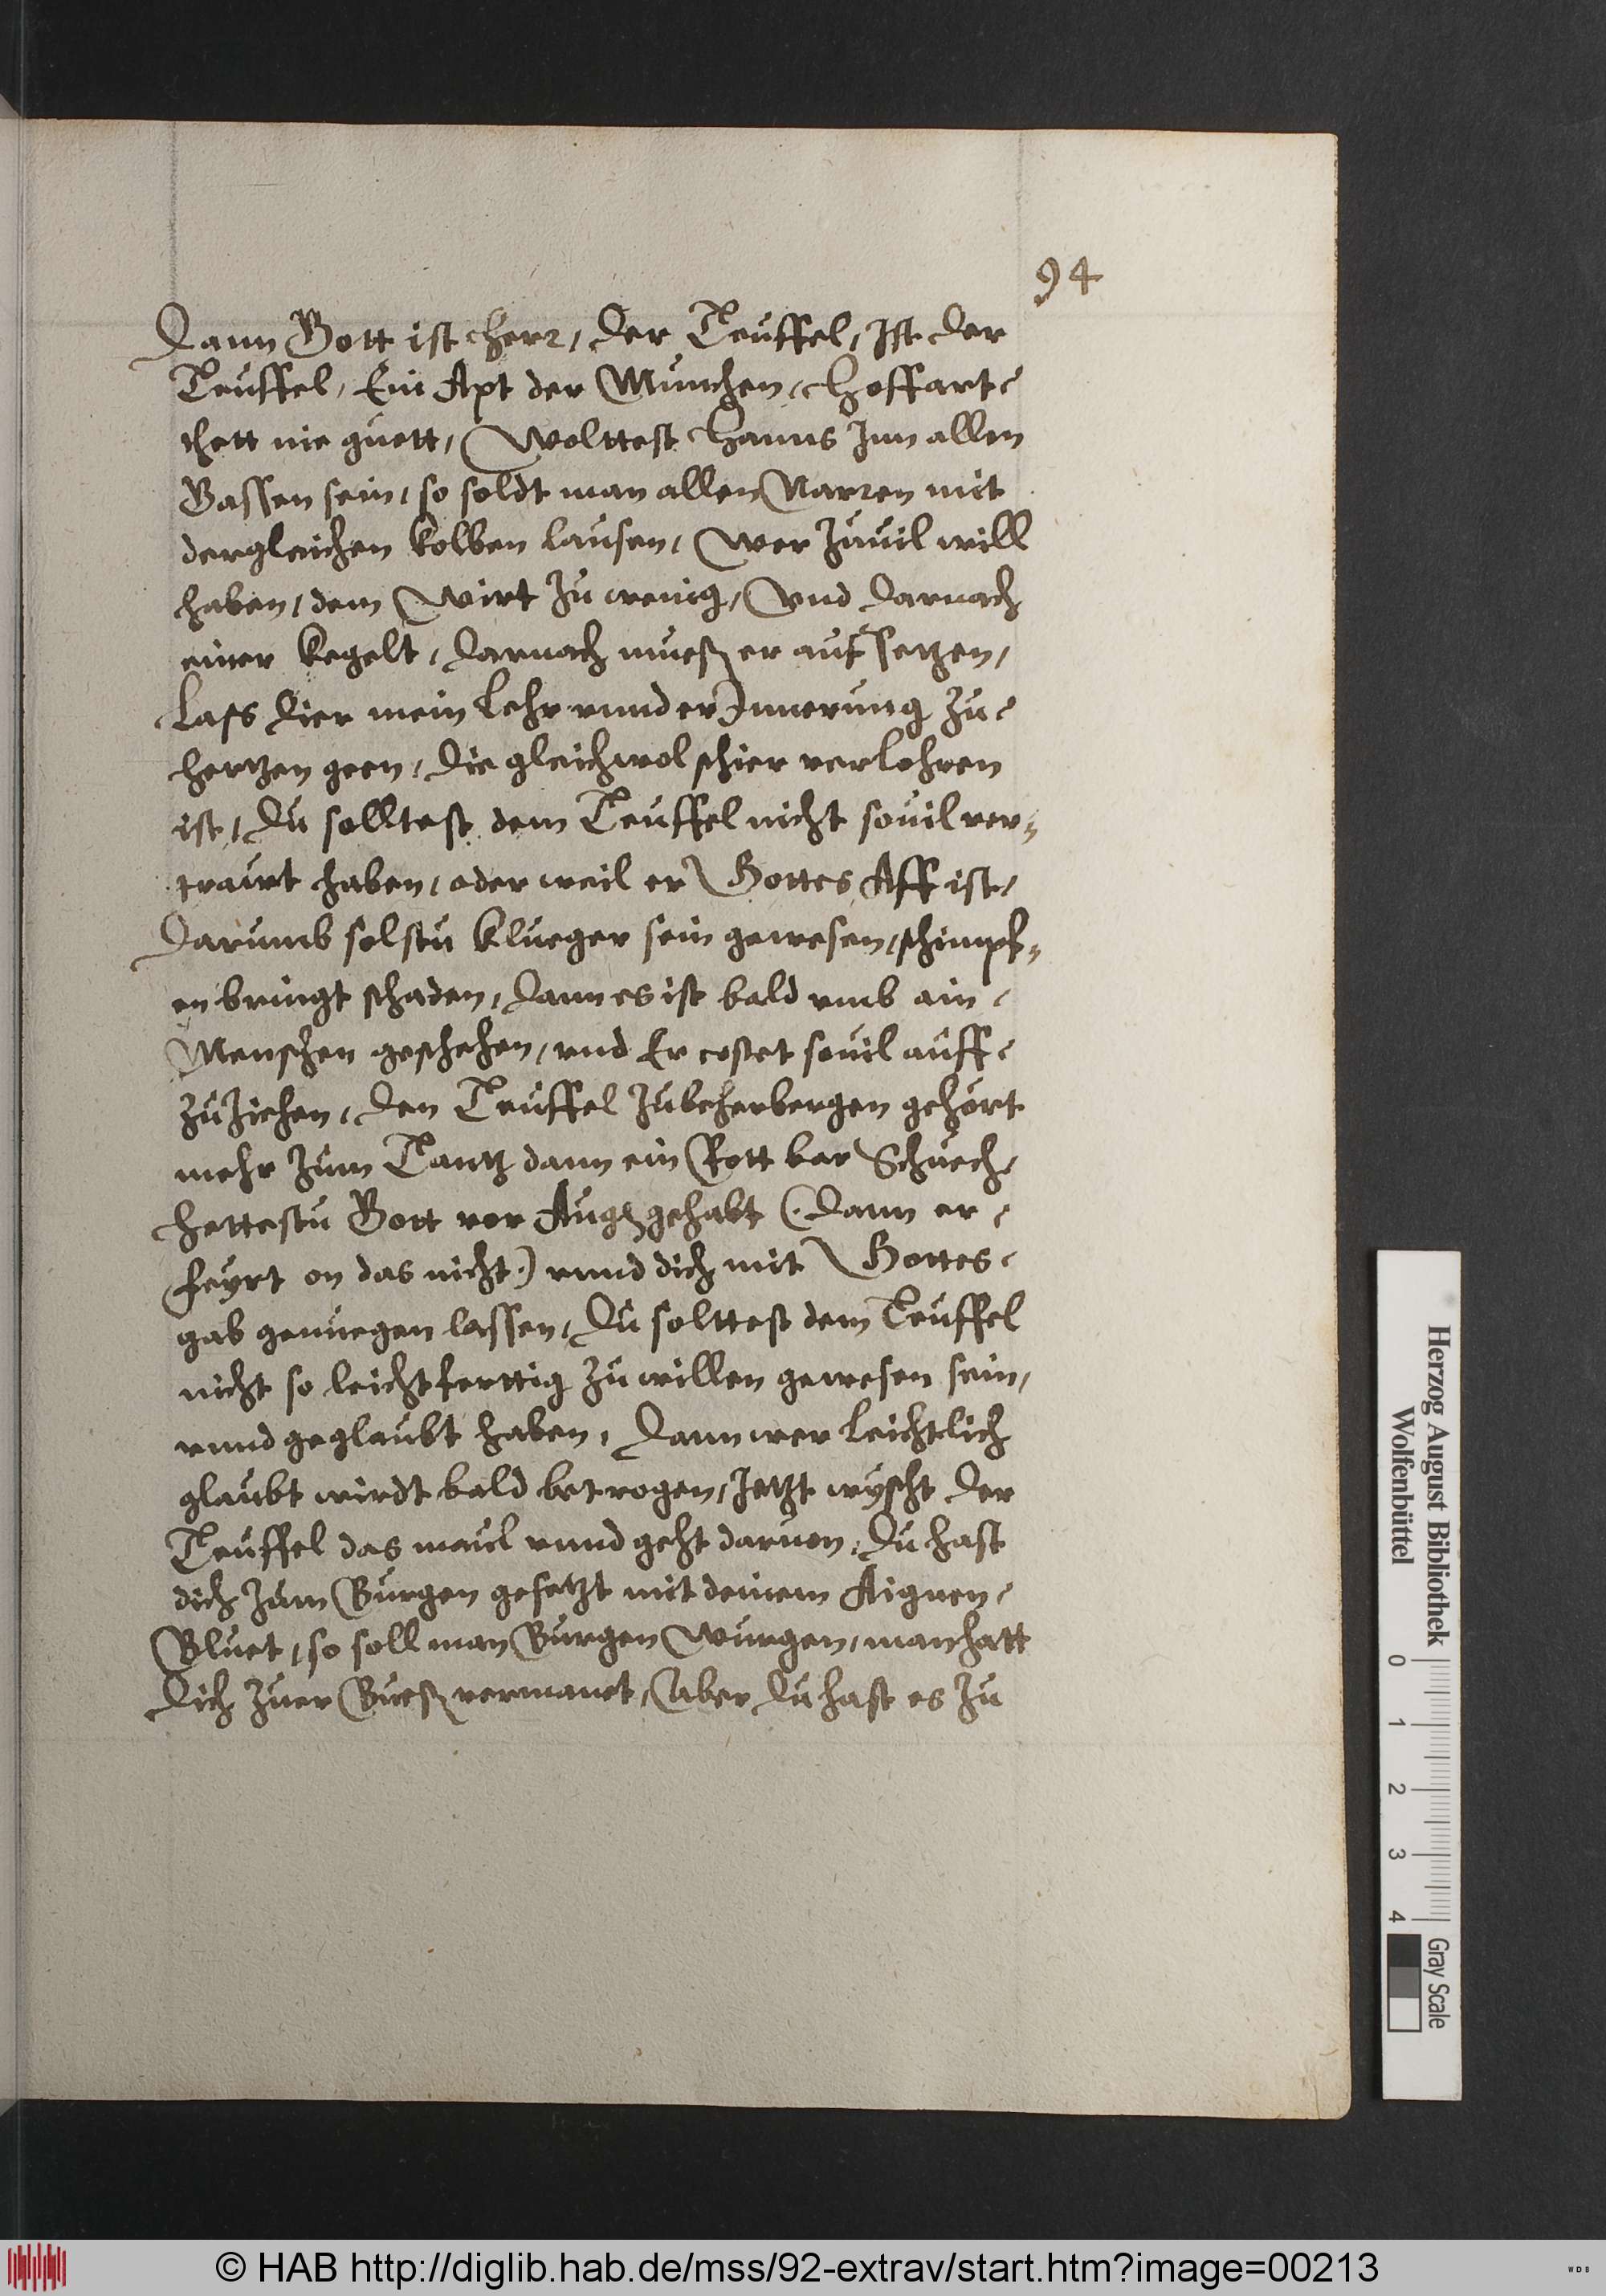 94
Dann Gott ist herr, der Teuffel, Ist der
Teuffel, Ein Apt der Munchen, Hoffart
thett nie guett, Wolttest Hanns Inn allen
Gassen sein, so soldt man allen Narren mit
dergleichen kolben lausen, Wer zuuil will
haben, dem Wirt zu wenig, Vnd darnach
einer kegelt, darnach mueß er auf setzen,
Lass dier mein Lehr vnnd erInnerung zu
hertzen geen, die gleichwol schier verlohren
ist, Du solltest dem Teuffel nicht souil ver⸗
trawt haben, oder weil er Gottes Aff ist,
Darumb solstu klueger sein gewesen, schimpf⸗
en bringt schaden, dann es ist bald vmb ain
Menschen geschehen, vnd Er costet souil auff
zuziehen, den Teuffel zubeherbergen gehört
mehr zum Tantz dann ein Rott bar Schuech
hettestu Gott vor Augen gehabt (dann er
feyrt on das nicht) vnnd dich mit Gottes
gab genuegen lassen, Du solttest dem Teuffel
nicht so leichtferttig zu willen gewesen sein,
vnnd geglaubt haben, Dann wer Leichtlich
glaubt wirdt bald betrogen, Jetzt wyscht der
Teuffel das maul vnnd geht daruon, Du hast
dich zum Burgen gesetzt mit deinem Aignen
Bluet, so soll man Burgen Wurgen, man hatt
Dich zuer Bueß vermant, Aber du hast es zu
Herzog August Bibliothek
Wolfenbüttel
0 1 2 3 4
Gray Scale
© HAB http://diglib.hab.de/mss/92-extrav/start.htm?image=00213
WDB